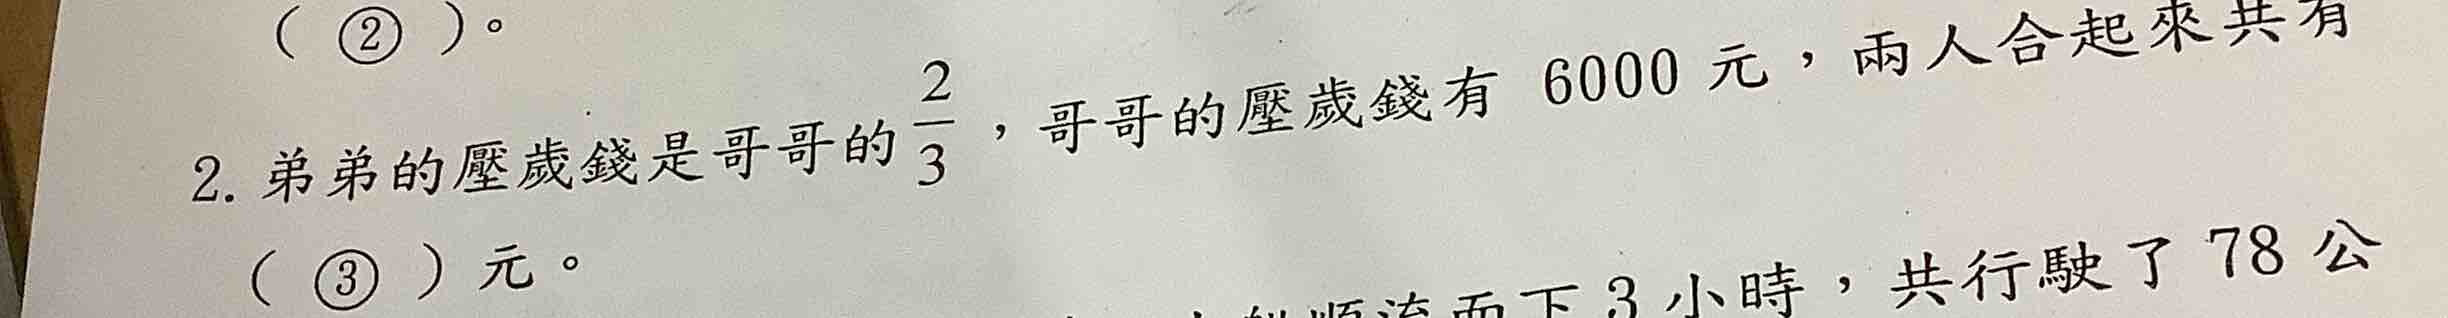 ( ② )。
2. 弟弟的壓歲錢是哥哥的 2/3 ，哥哥的壓歲錢有 6000 元，兩人合起來共有
( ③ ) 元。
順流而下 3 小時，共行駛了 78 公